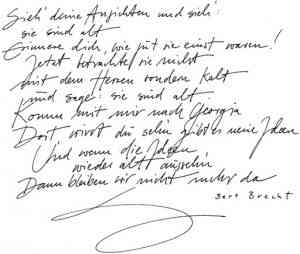 Sieh' deine Ansichten und sieh:
sie sind alt
Erinnere dich, wie gut sie einst waren!
Jetzt betrachte sie nicht
mit dem Herzen sondern kalt
Und sage: sie sind alt
Komm mit mir nach Georgia
Dort wirst du sehn gibt es neue Ideen
Und wenn die Ideen
wieder alt aussehn
Dann bleiben wir nicht mehr da
Bert Brecht